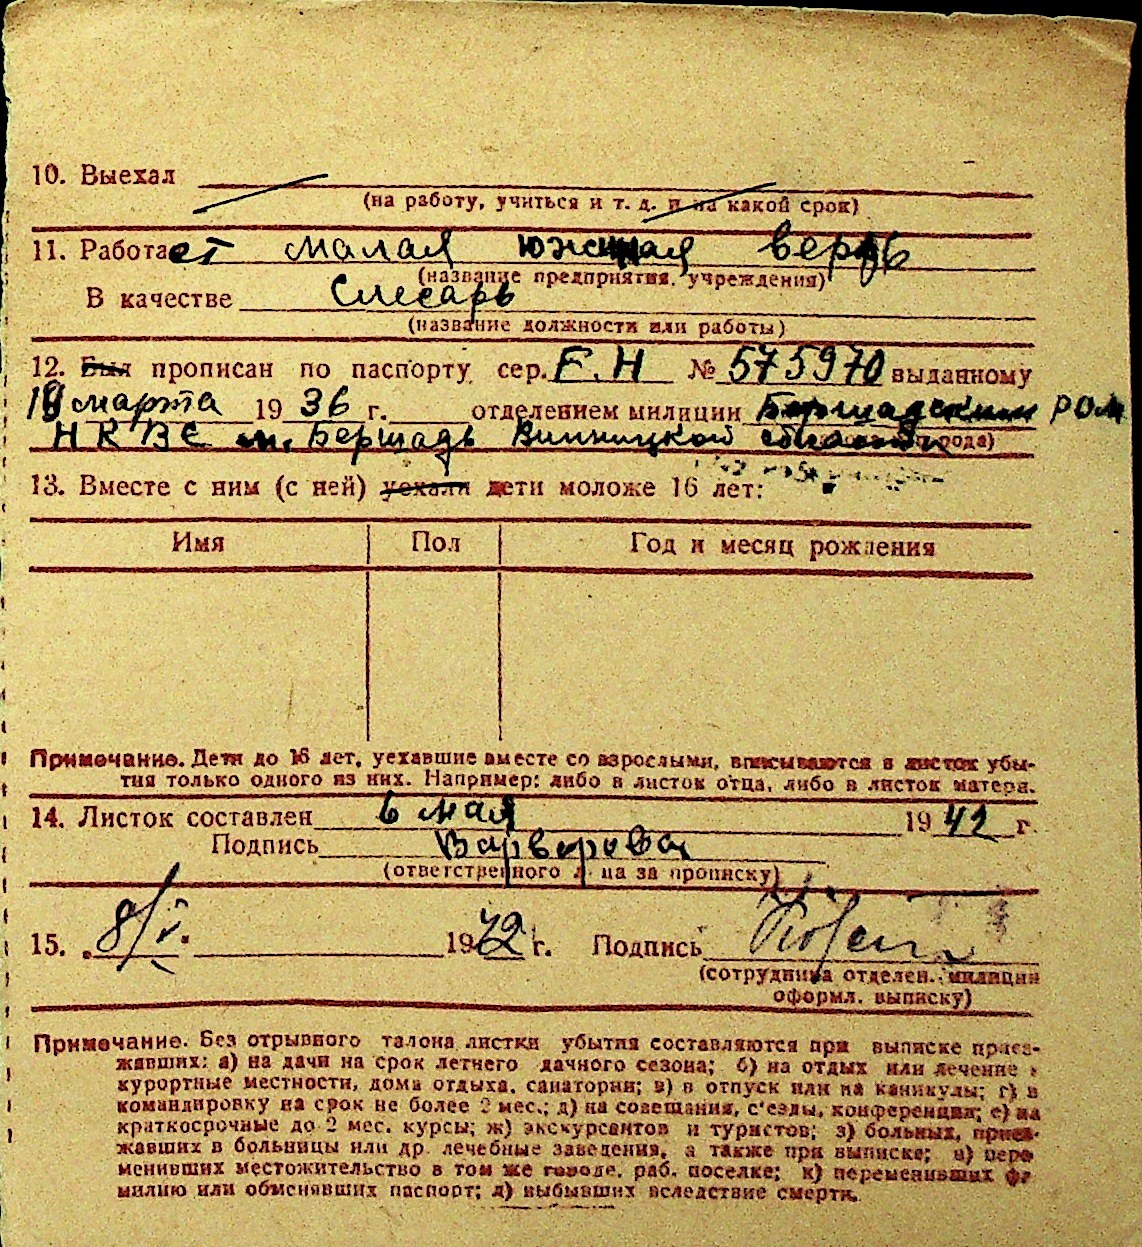 10. Выехал
(на работу, учиться и т. д. и на какой срок)
11. Работает малая южная верфь
(название предприятия, учреждения)
В качестве Слесарь
(название должности или работы)
12. Был прописан по паспорту сер. Е.Н № 575970 выданному
19 марта 1936 г. отделением милиции Бершадским РОМ
НКВС м. Бершадь Винницкой области города)
13. Вместе с ним (с ней) уехали дети моложе 16 лет:
Имя Пол Год и месяц рождения
Примечание. Дети до 16 лет, уехавшие вместе со взрослыми, вписываются в листок убы-
тия только одного из них. Например: либо в листок отца, либо в листок матери.
14. Листок составлен 6 мая 1942 г.
Подпись Варварова
(ответственного лица за прописку)
15. 8/V. 1942 г. Подпись
(сотрудника отделен. милиции
оформл. выписку)
Примечание. Без отрывного талона листки убытия составляются при выписке приез-
жавших: а) на дачи на срок летнего дачного сезона; б) на отдых или лечение в
курортные местности, дома отдыха, санатории; в) в отпуск или на каникулы; г) в
командировку на срок не более 2 мес.; д) на совещания, с'езды, конференции; е) на
краткосрочные до 2 мес. курсы; ж) экскурсантов и туристов; з) больных, приез-
жавших в больницы или др. лечебные заведения, а также при выписке; и) пере
менивших местожительство в том же городе, раб. поселке; к) переменивших фа
милию или обменявших паспорт; л) выбывших вследствие смерти.